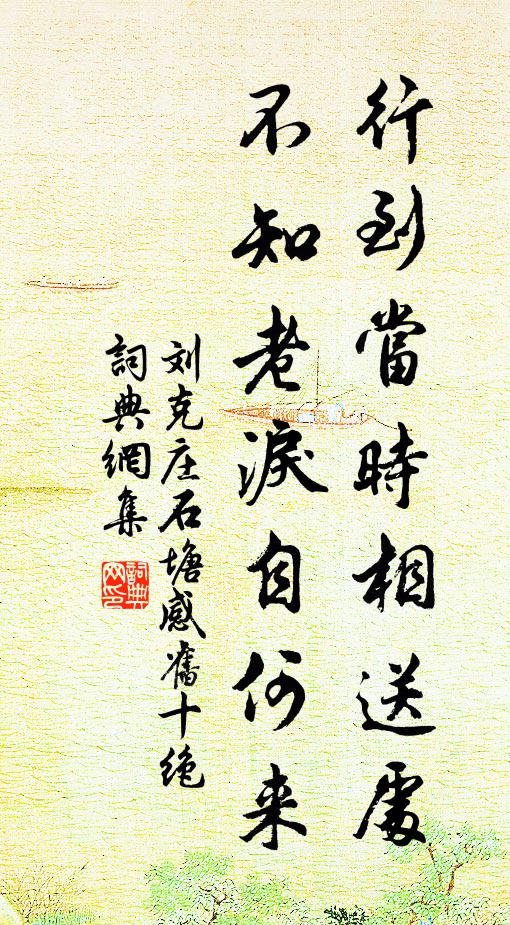 行到當時相送處
不知老淚自何来
刘克庄石塘感舊十绝
詞典網集
詞典
网印